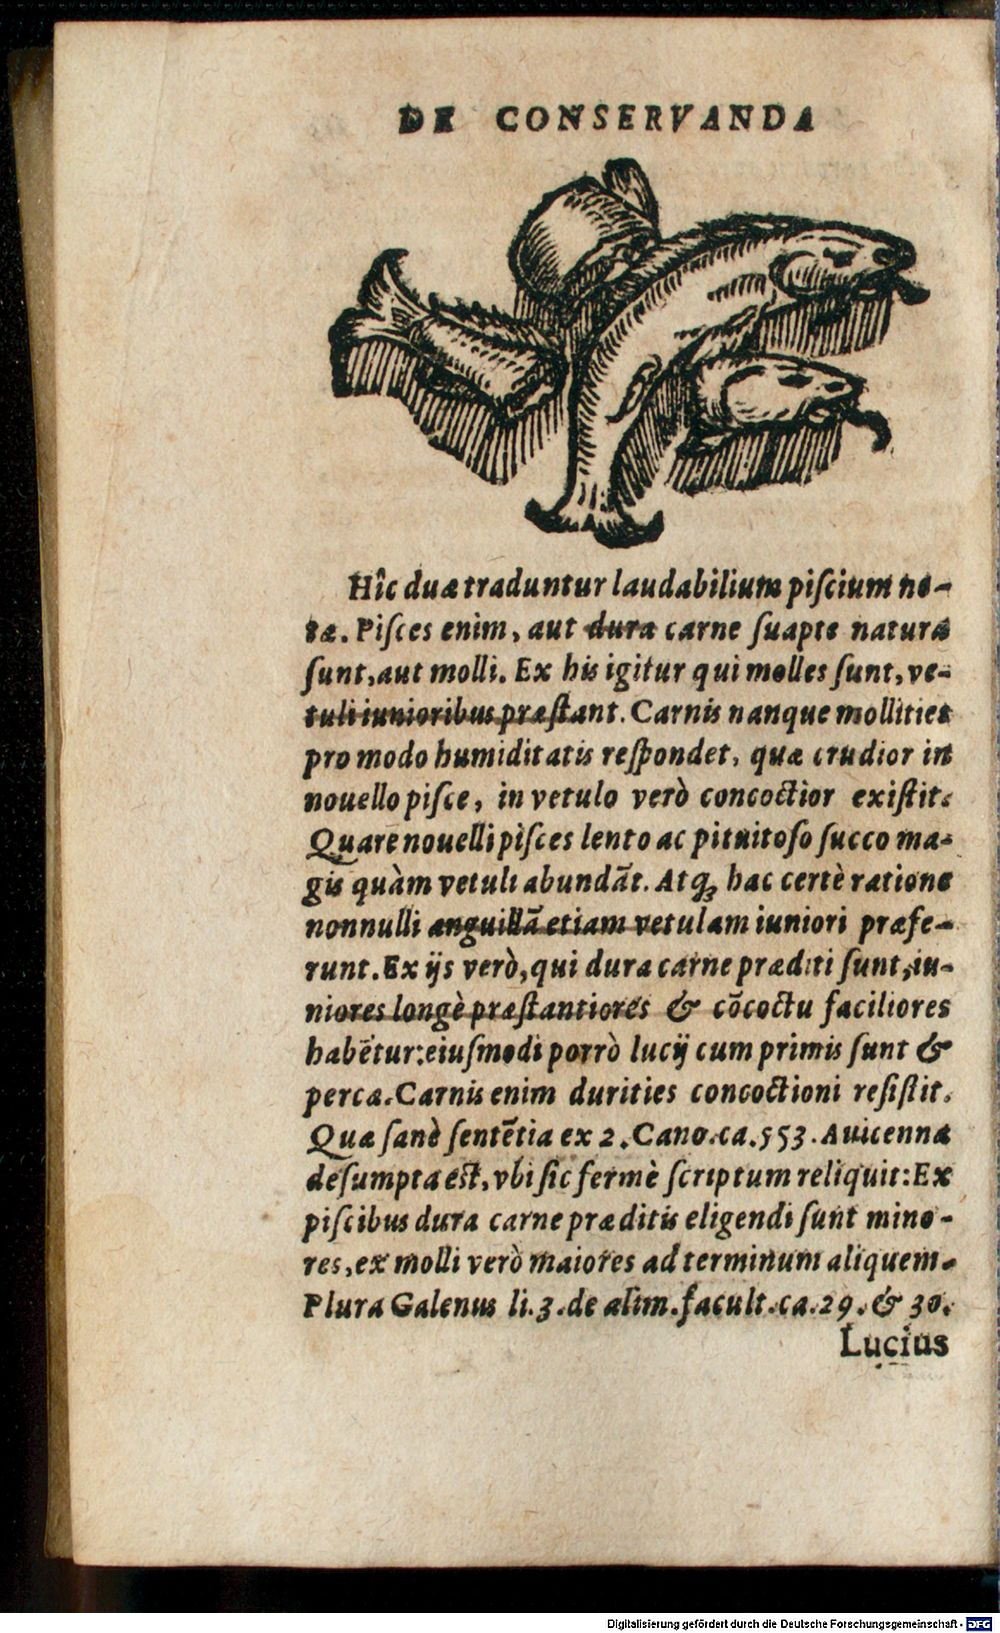 DE CONSERVANDA
Hîc duæ traduntur laudabilium piſcium no-
tæ. Piſces enim, aut dura carne ſuapte natura
ſunt, aut molli. Ex his igitur qui molles ſunt, ve-
tuli iunioribus præſtant. Carnis nanque mollities
pro modo humiditatis reſpondet, quæ crudior in
nouello piſce, in vetulo verò concoctior exiſtit.
Quare nouelli piſces lento ac pituitoſo ſucco ma-
gis quàm vetuli abundãt. Atqꝫ hac certè ratione
nonnulli anguillã etiam vetulam iuniori præfe-
runt. Ex ijs verò, qui dura carne præditi ſunt, iu-
niores longè præſtantiores & cõcoctu faciliores
habẽtur: eiuſmodi porrò lucij cum primis ſunt &
perca. Carnis enim durities concoctioni reſiſtit.
Quæ ſanè ſentẽtia ex 2. Cano. ca. 553. Auicennæ
deſumpta eſt, vbi ſic fermè ſcriptum reliquit: Ex
piſcibus dura carne præditis eligendi ſunt mino-
res, ex molli verò maiores ad terminum aliquem.
Plura Galenus li. 3. de alim. facult. ca. 29. & 30.
Lucius
Digitalisierung gefördert durch die Deutsche Forschungsgemeinschaft - DFG